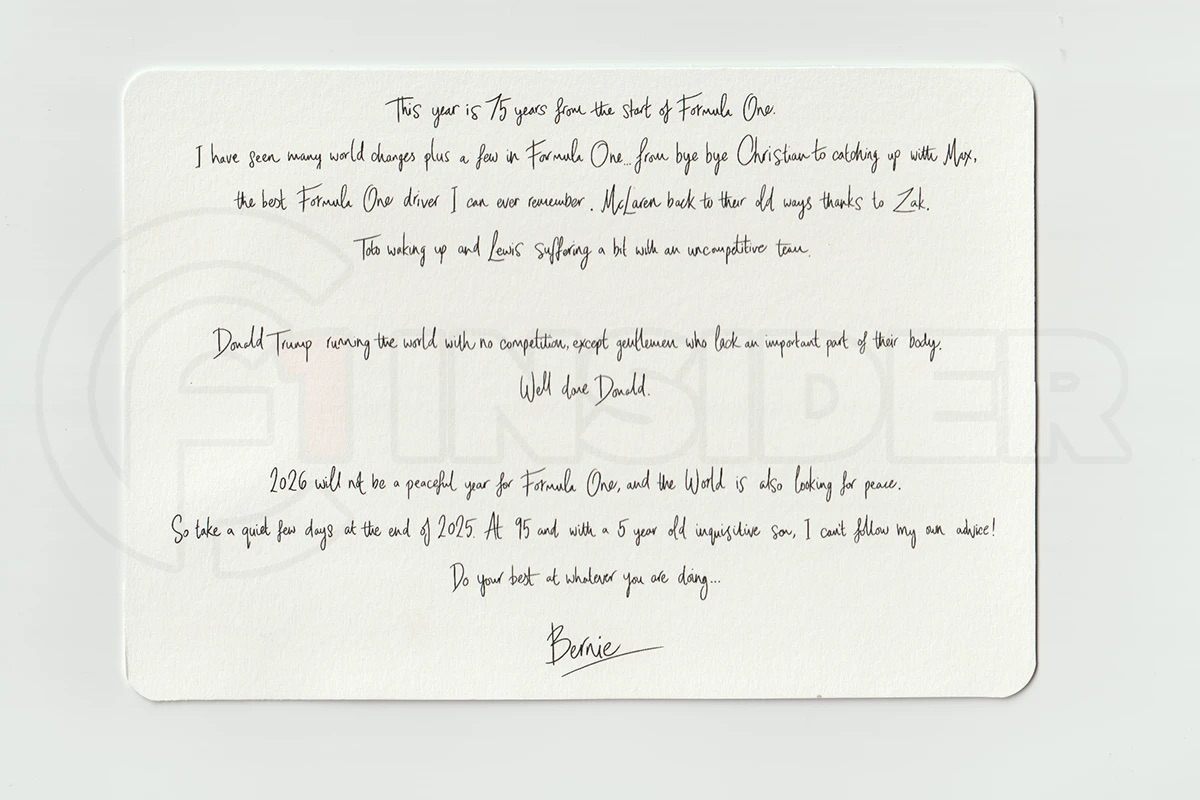 This year is 75 years from the start of Formula One.
I have seen many world changes plus a few in Formula One... from bye bye Christian to catching up with Max,
the best Formula One driver I can ever remember. McLaren back to their old ways thanks to Zak.
Toto waking up and Lewis suffering a bit with an uncompetitive team.
Donald Trump running the world with no competition, except gentlemen who lack an important part of their body.
Well done Donald.
2026 will not be a peaceful year for Formula One, and the World is also looking for peace.
So take a quiet few days at the end of 2025. At 95 and with a 5 year old inquisitive son, I can't follow my own advice!
Do your best at whatever you are doing...
Bernie
F1 INSIDER